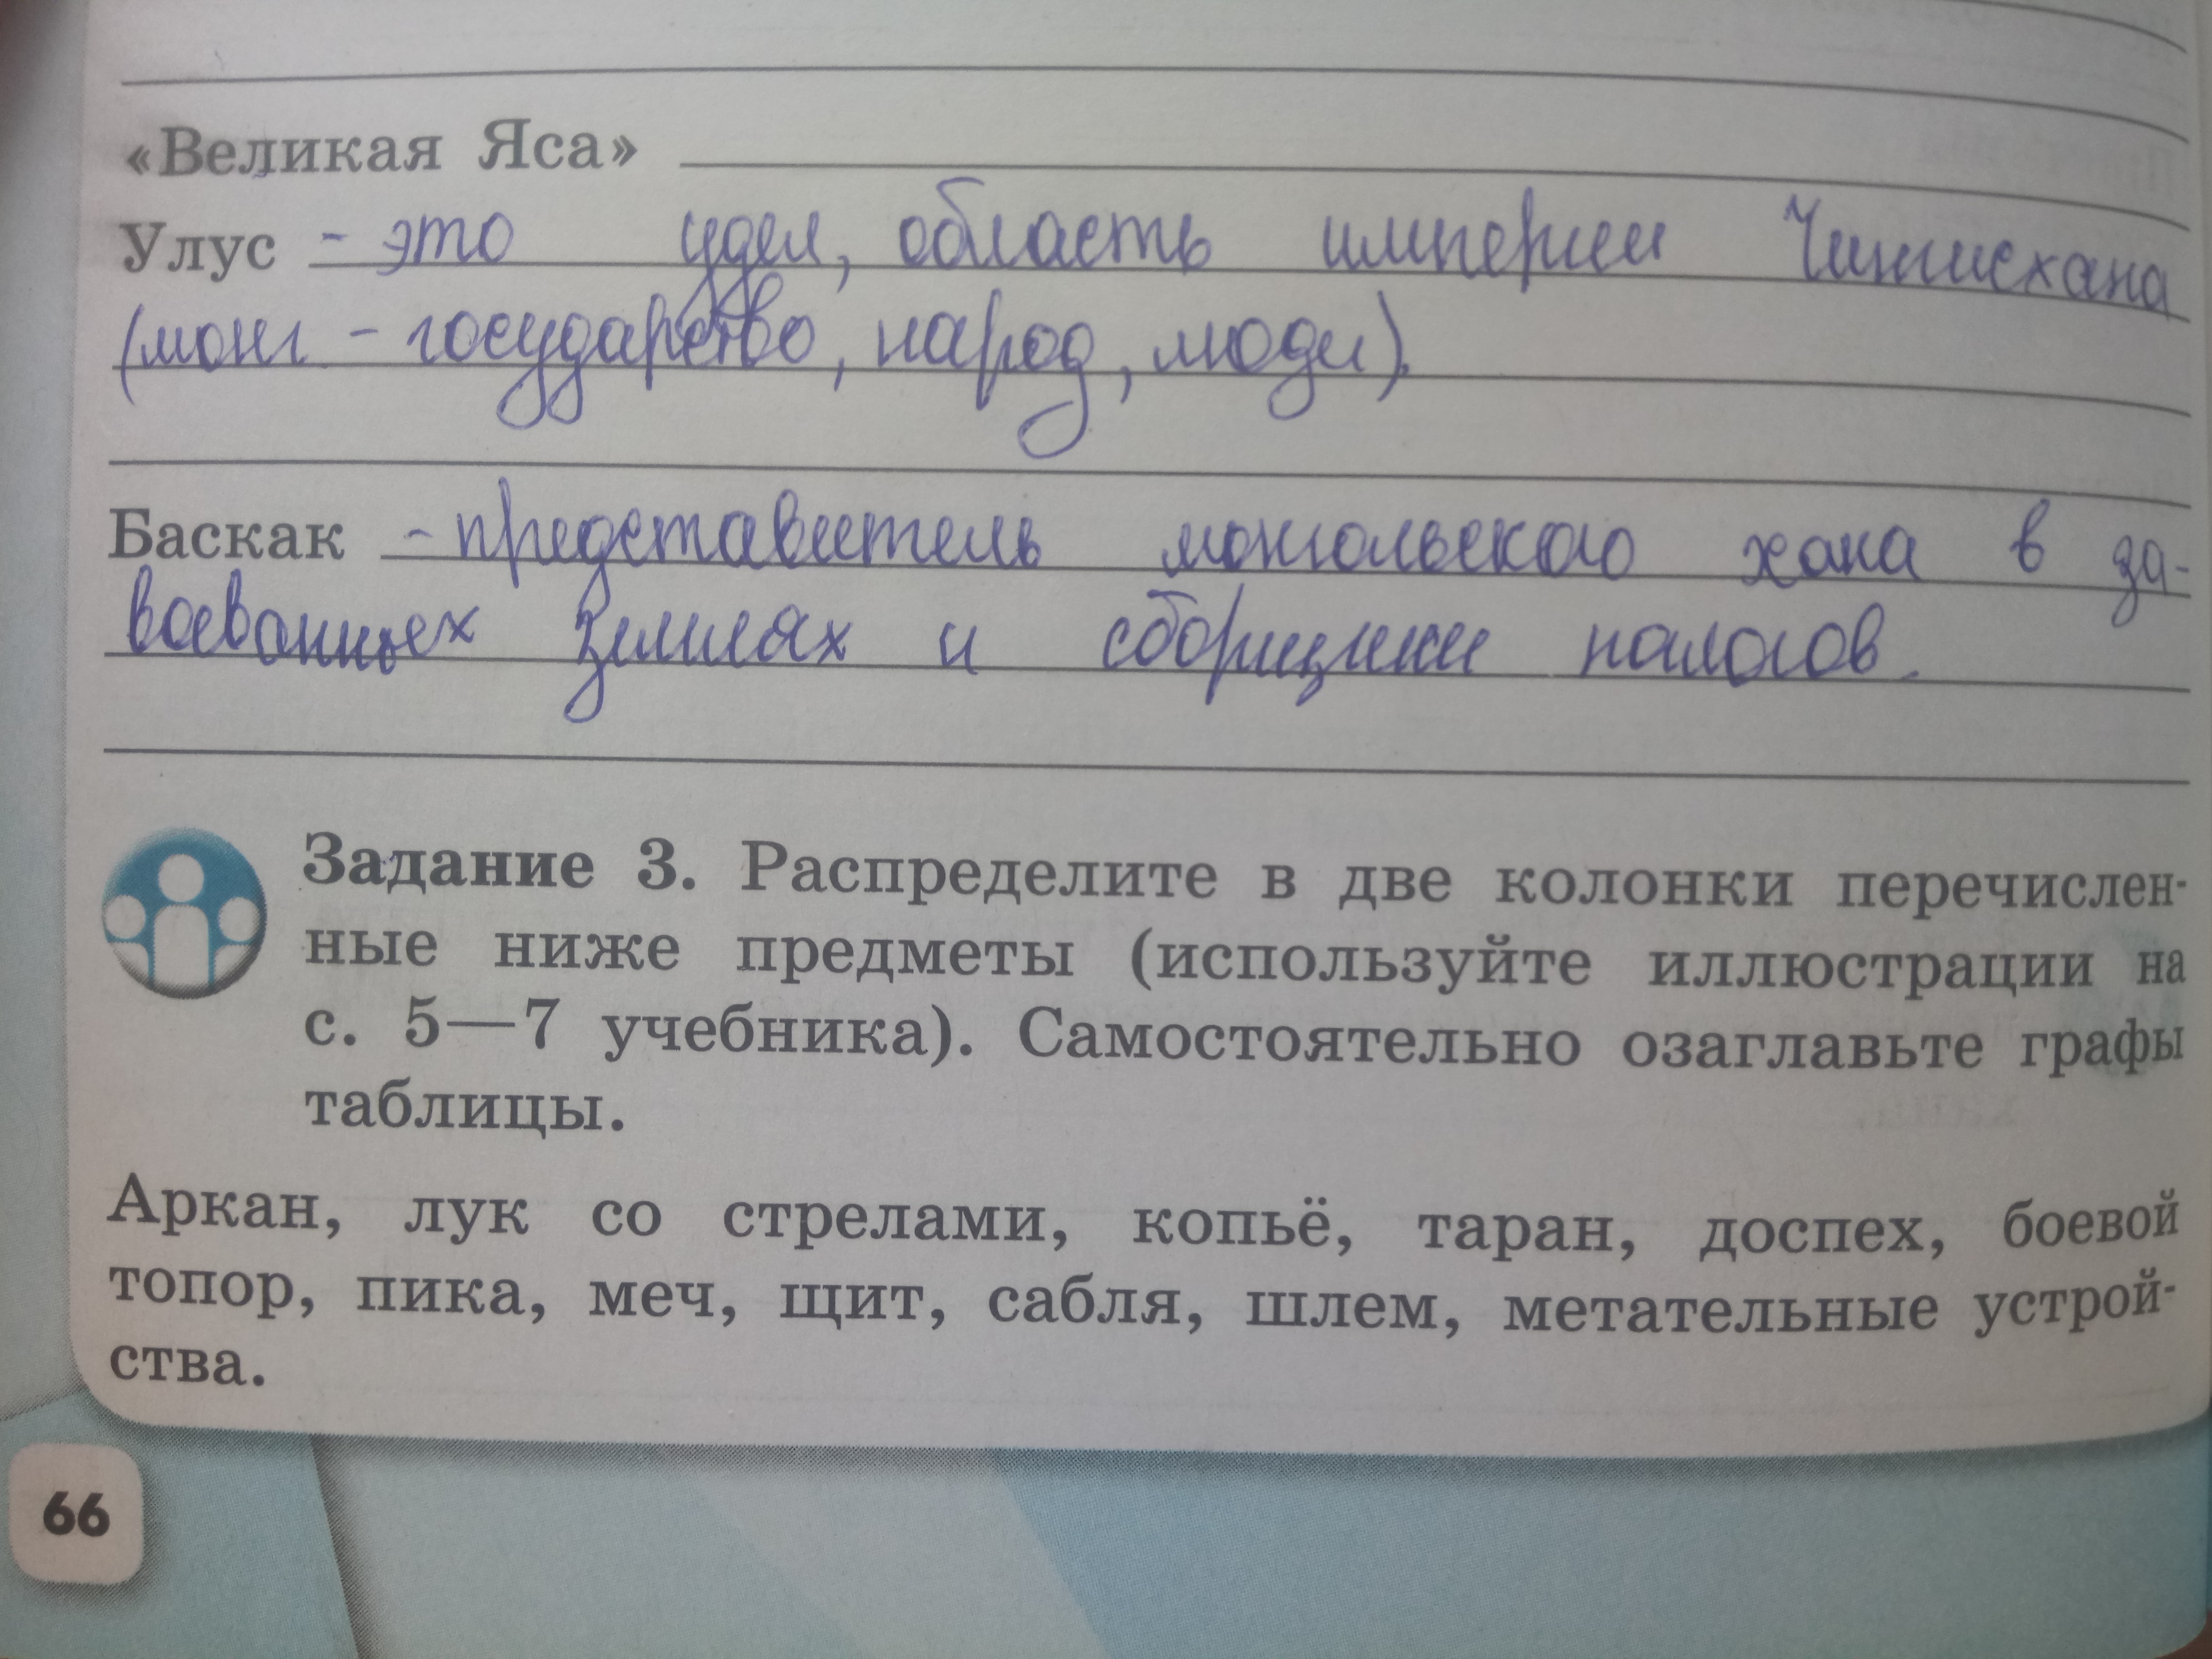 «Великая Яса»
Улус - это удел, область империи Чингисхана
(монг - государство, народ, люди).
Баскак - представитель монгольского хана в за-
воеванных землях и сборщики налогов.
Задание 3. Распределите в две колонки перечислен-
ные ниже предметы (используйте иллюстрации на
с. 5—7 учебника). Самостоятельно озаглавьте графы
таблицы.
Аркан, лук со стрелами, копьё, таран, доспех, боевой
топор, пика, меч, щит, сабля, шлем, метательные устрой-
ства.
66